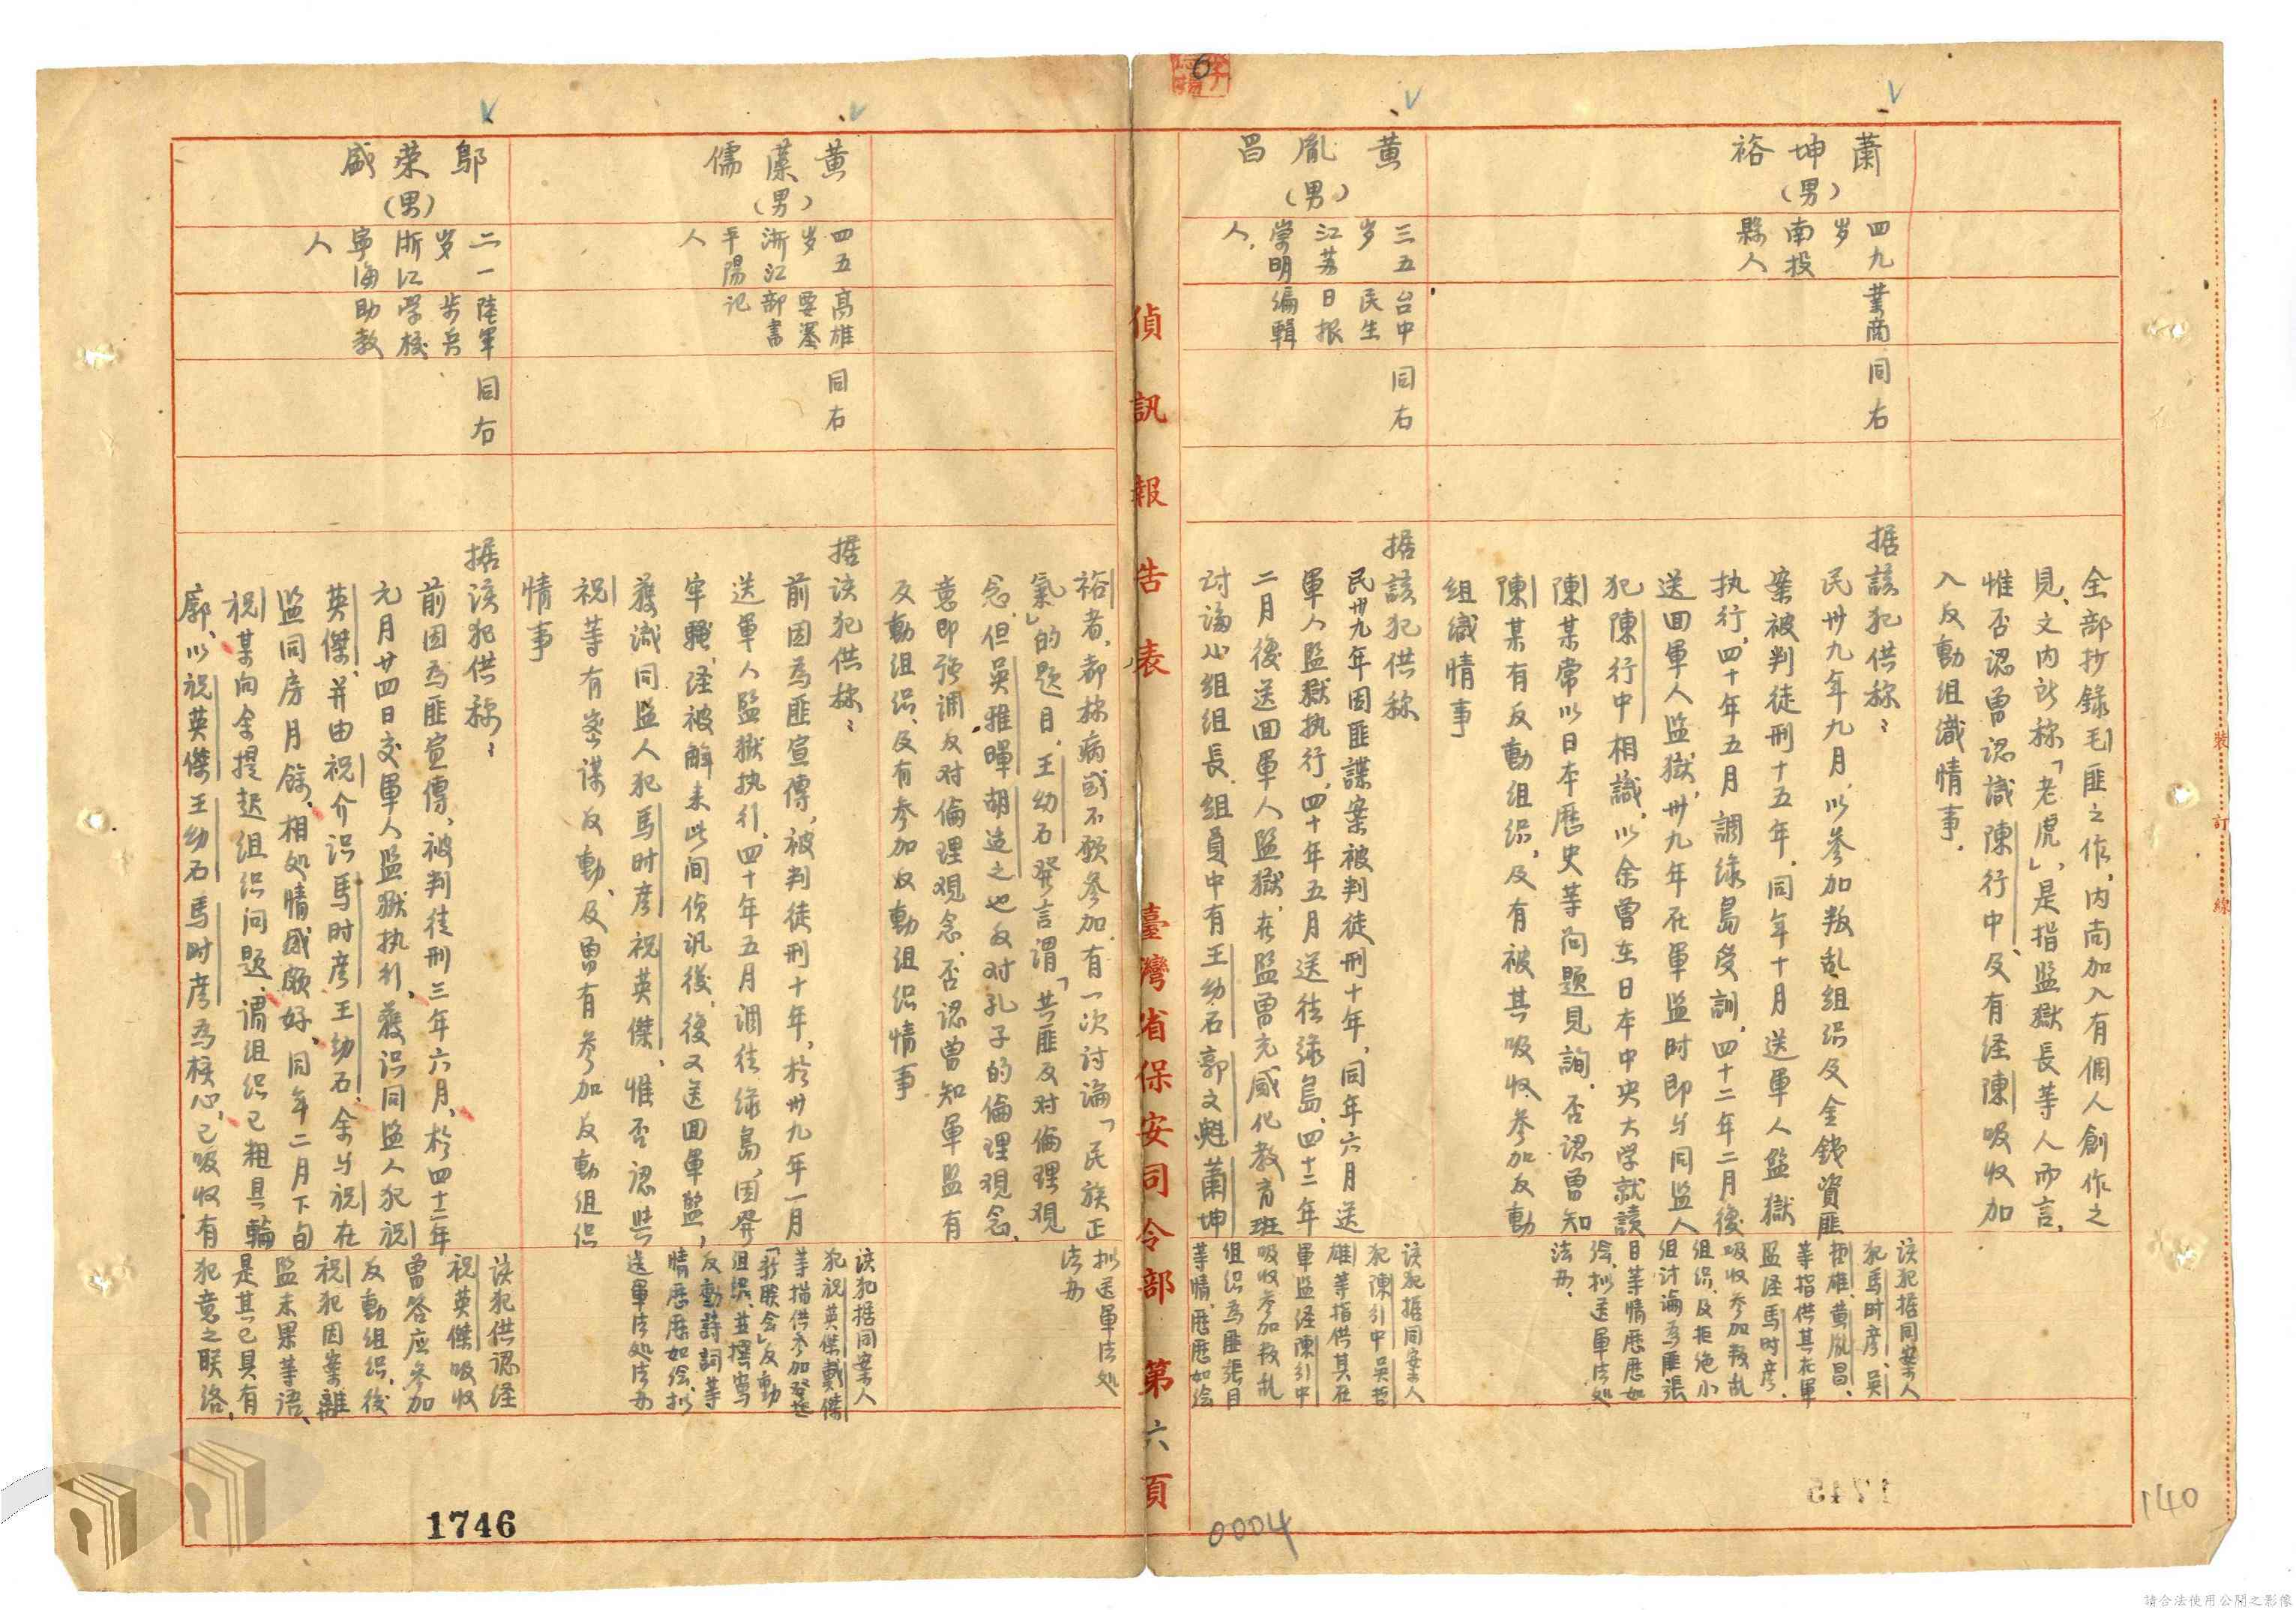 全部抄錄毛匪之作,内尚加入有個人創作之
見、文内所称「老虎」,是指監獄長等人而言,
惟否認曾認識陳行中、及有经陳吸收加
入反動组織情事.
蕭坤裕
(男)
四九
岁
南投
縣人
業商
同右
据該犯供称:
民卅九年九月,以參加叛乱组织及金錢資匪
案被判徒刑十五年,同年十月送軍人監獄
执行,四十年五月調綠島受訓,四十二年二月後
送回軍人監獄,卅九年在軍监时即与同监人
犯陳行中相識,以余曾在日本中央大学就讀
陳某常以日本歷史等问題見詢,否認曾知
陳某有反動组织,及有被其吸收參加反動
组織情事
该犯据同案人
犯馬时彦、吴
哲雄、黄胤昌、
等指供其在軍
监经馬时彦,
吸收參加叛乱
组织,及拒绝小
组讨論為匪張
目等情歷歷如
绘,拟送軍法处
法办.
黄胤昌
(男)
三五
岁
江苏
崇明
人,
台中
民生
日报
编輯
同右
据該犯供称
民卅九年因匪諜案被判徒刑十年,同年六月送
軍人監獄执行,四十年五月送往綠島,四十二年
二月後送回軍人监獄,在监曾充感化教育班
讨論小组组長,组員中有王幼石郭文魁蕭坤
该犯据同案人
犯陳行中吴哲
雄等指供其在
軍监经陳行中
吸收參加叛乱
组织為匪張目
等情,歷歷如绘
偵訊報告表 臺灣省保安司令部 第六頁
裕者,都称病或不願參加,有一次讨論「民族正
氣」的题目,王幼石發言謂「共匪反对倫理观
念,但吴雅暉胡适之也反对孔子的倫理观念,
意即强调反对倫理观念,否認曾知軍监有
反動组织,及有參加反動组织情事
拟送軍法处
法办
黄藻儒
(男)
四五
岁
浙江
平陽
人
高雄
要塞
部書
记
同右
据该犯供称:
前因為匪宣傳,被判徒刑十年,於卅九年一月
送軍人監獄执行,四十年五月调往綠島,因發
牢騷,经被解来此间侦讯後,後又送回軍监,
獲識同监人犯馬时彦祝英傑,惟否認與
祝等有密谋反動,及曾有參加反動组织
情事
该犯据同案人
犯祝英傑戴傑
等指供參加發起
「新联会」反動
组织,并撰寫
反動詩詞等
情歷歷如绘,拟
送軍法处法办
鄔荣盛
(男)
二一
岁
浙江
寧海
人
陸軍
步兵
学校
助教
同右
据该犯供称:
前因為匪宣傳,被判徒刑三年六月,於四十二年
元月廿四日交軍人监獄执行,獲识同监人犯祝
英傑,并由祝介识馬时彦王幼石,余与祝在
监同房月餘,相处情感颇好,同年二月下旬
祝某向余提起组织问题,谓组织已粗具輪
廓,以祝英傑王幼石馬时彦為核心,已吸收有
该犯供認经
祝英傑吸收
曾答应參加
反動组织,後
祝犯因案離
监未果等语,
是其已具有
犯意之联络,
6
1746
0004
1745
140
裝訂線
請合法使用公開之影像